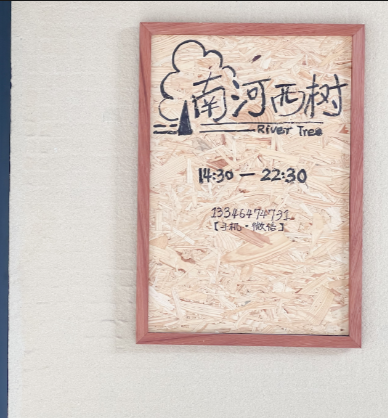 南河西树
River Tree
14:30 — 22:30
13346474731
【手机·微信】